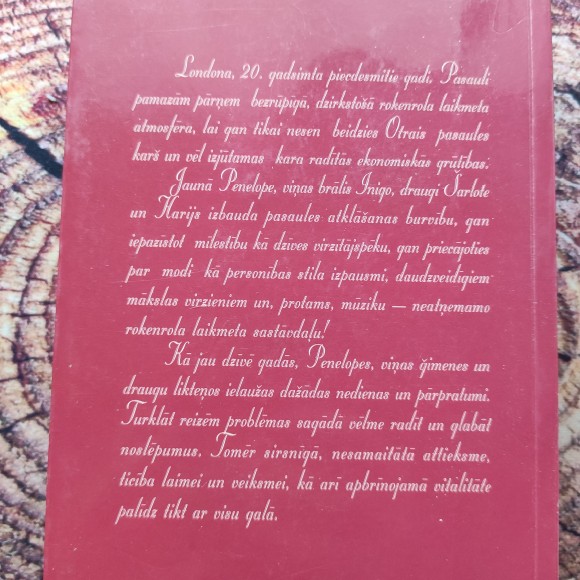 Londona, 20. gadsimta piecdesmitie gadi. Pasauli
pamazām pārņem bezrūpīgā, dzirkstošā rokenrola laikmeta
atmosfēra, lai gan tikai nesen beidzies Otrais pasaules
karš un vēl izjūtamas kara radītās ekonomiskās grūtības.
Jaunā Penelope, viņas brālis Inigo, draugi Šarlote
un Harijs izbauda pasaules atklāšanas burvību, gan
iepazīstot mīlestību kā dzīves virzītājspēku, gan prievājoties
par modi kā personības stila izpausmi, daudzveidīgiem
mākslas virzieniem un, protams, mūziku — neatņemamo
rokenrola laikmeta sastāvdaļu!
Kā jau dzīvē gadās, Penelopes, viņas ģimenes un
draugu likteņos ielaužas dažādas nedienas un pārpratumi.
Turklāt reizēm problēmas sagādā vēlme radīt un glabāt
noslēpumus. Tomēr sirsnīgā, nesamaitātā attieksme,
ticība laimei un veiksmei, kā arī apbrīnojamā vitalitāte
palīdz tikt ar visu galā.